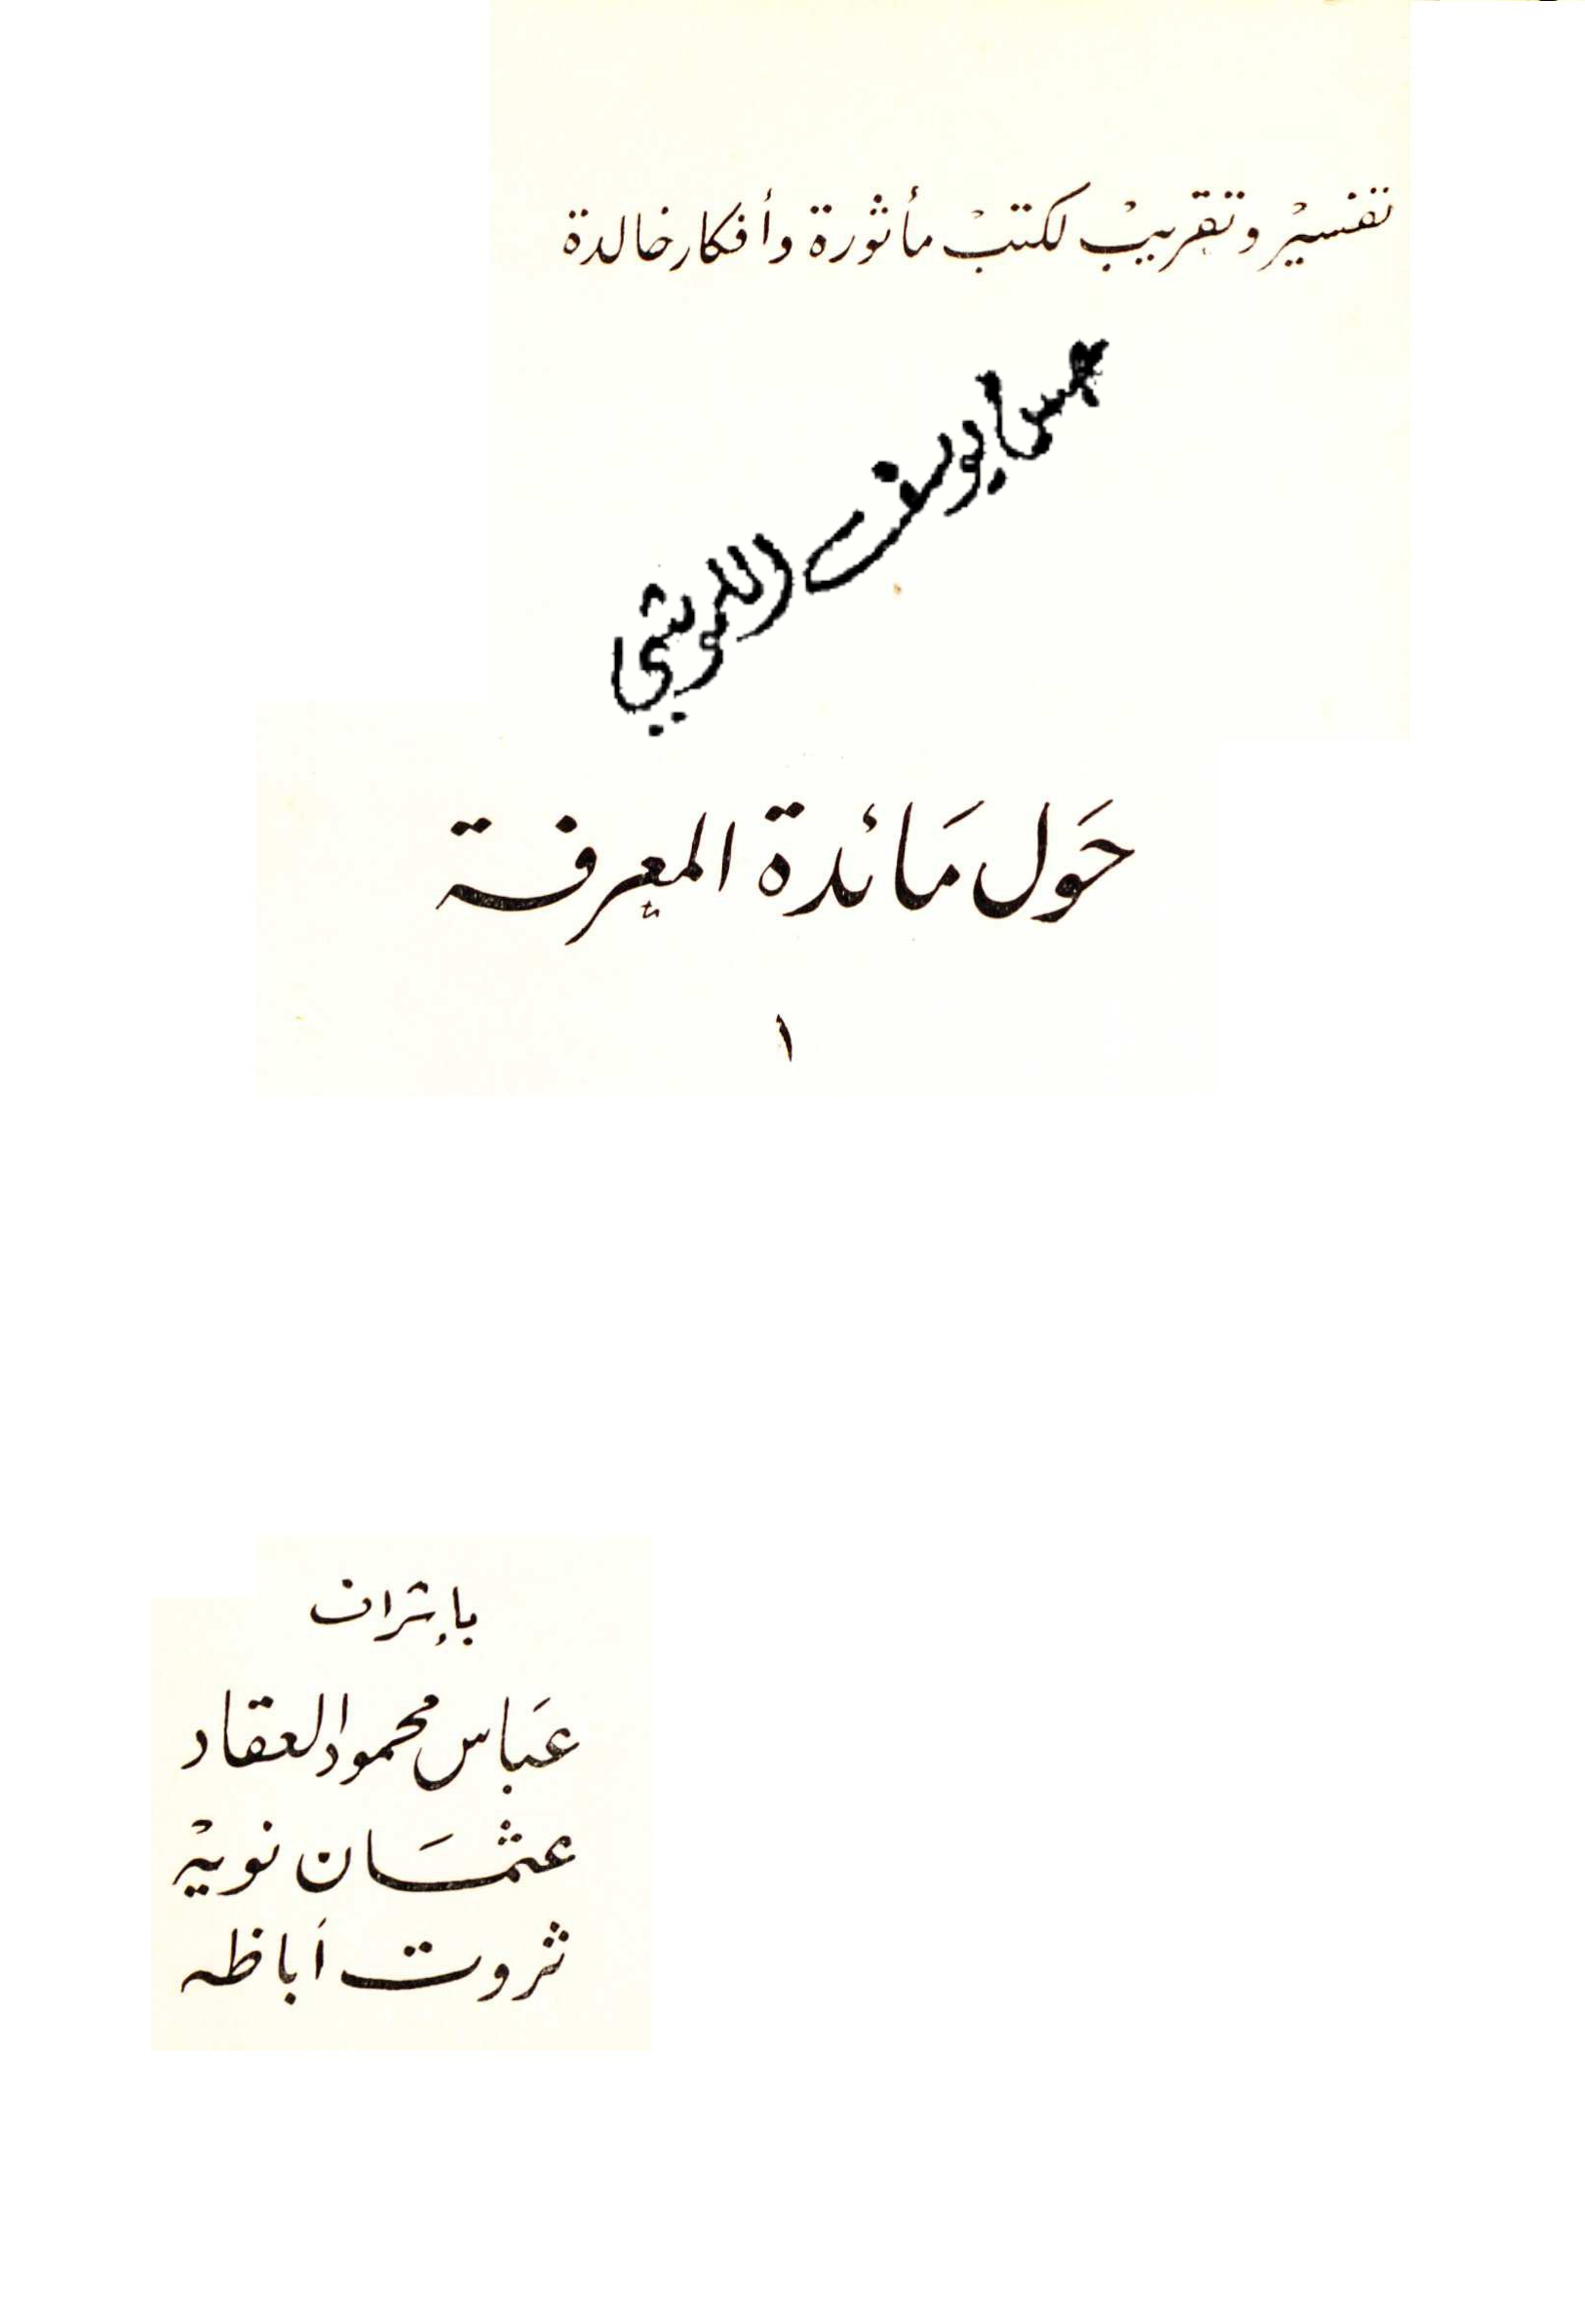 تفسير وتقريب لكتب مأثورة وأفكار خالدة
يوسف اللويشي
حَول مَائدة المعرفة
١
بإشراف
عَباس محمود العقاد
عثمَان نويه
ثروت أباظه